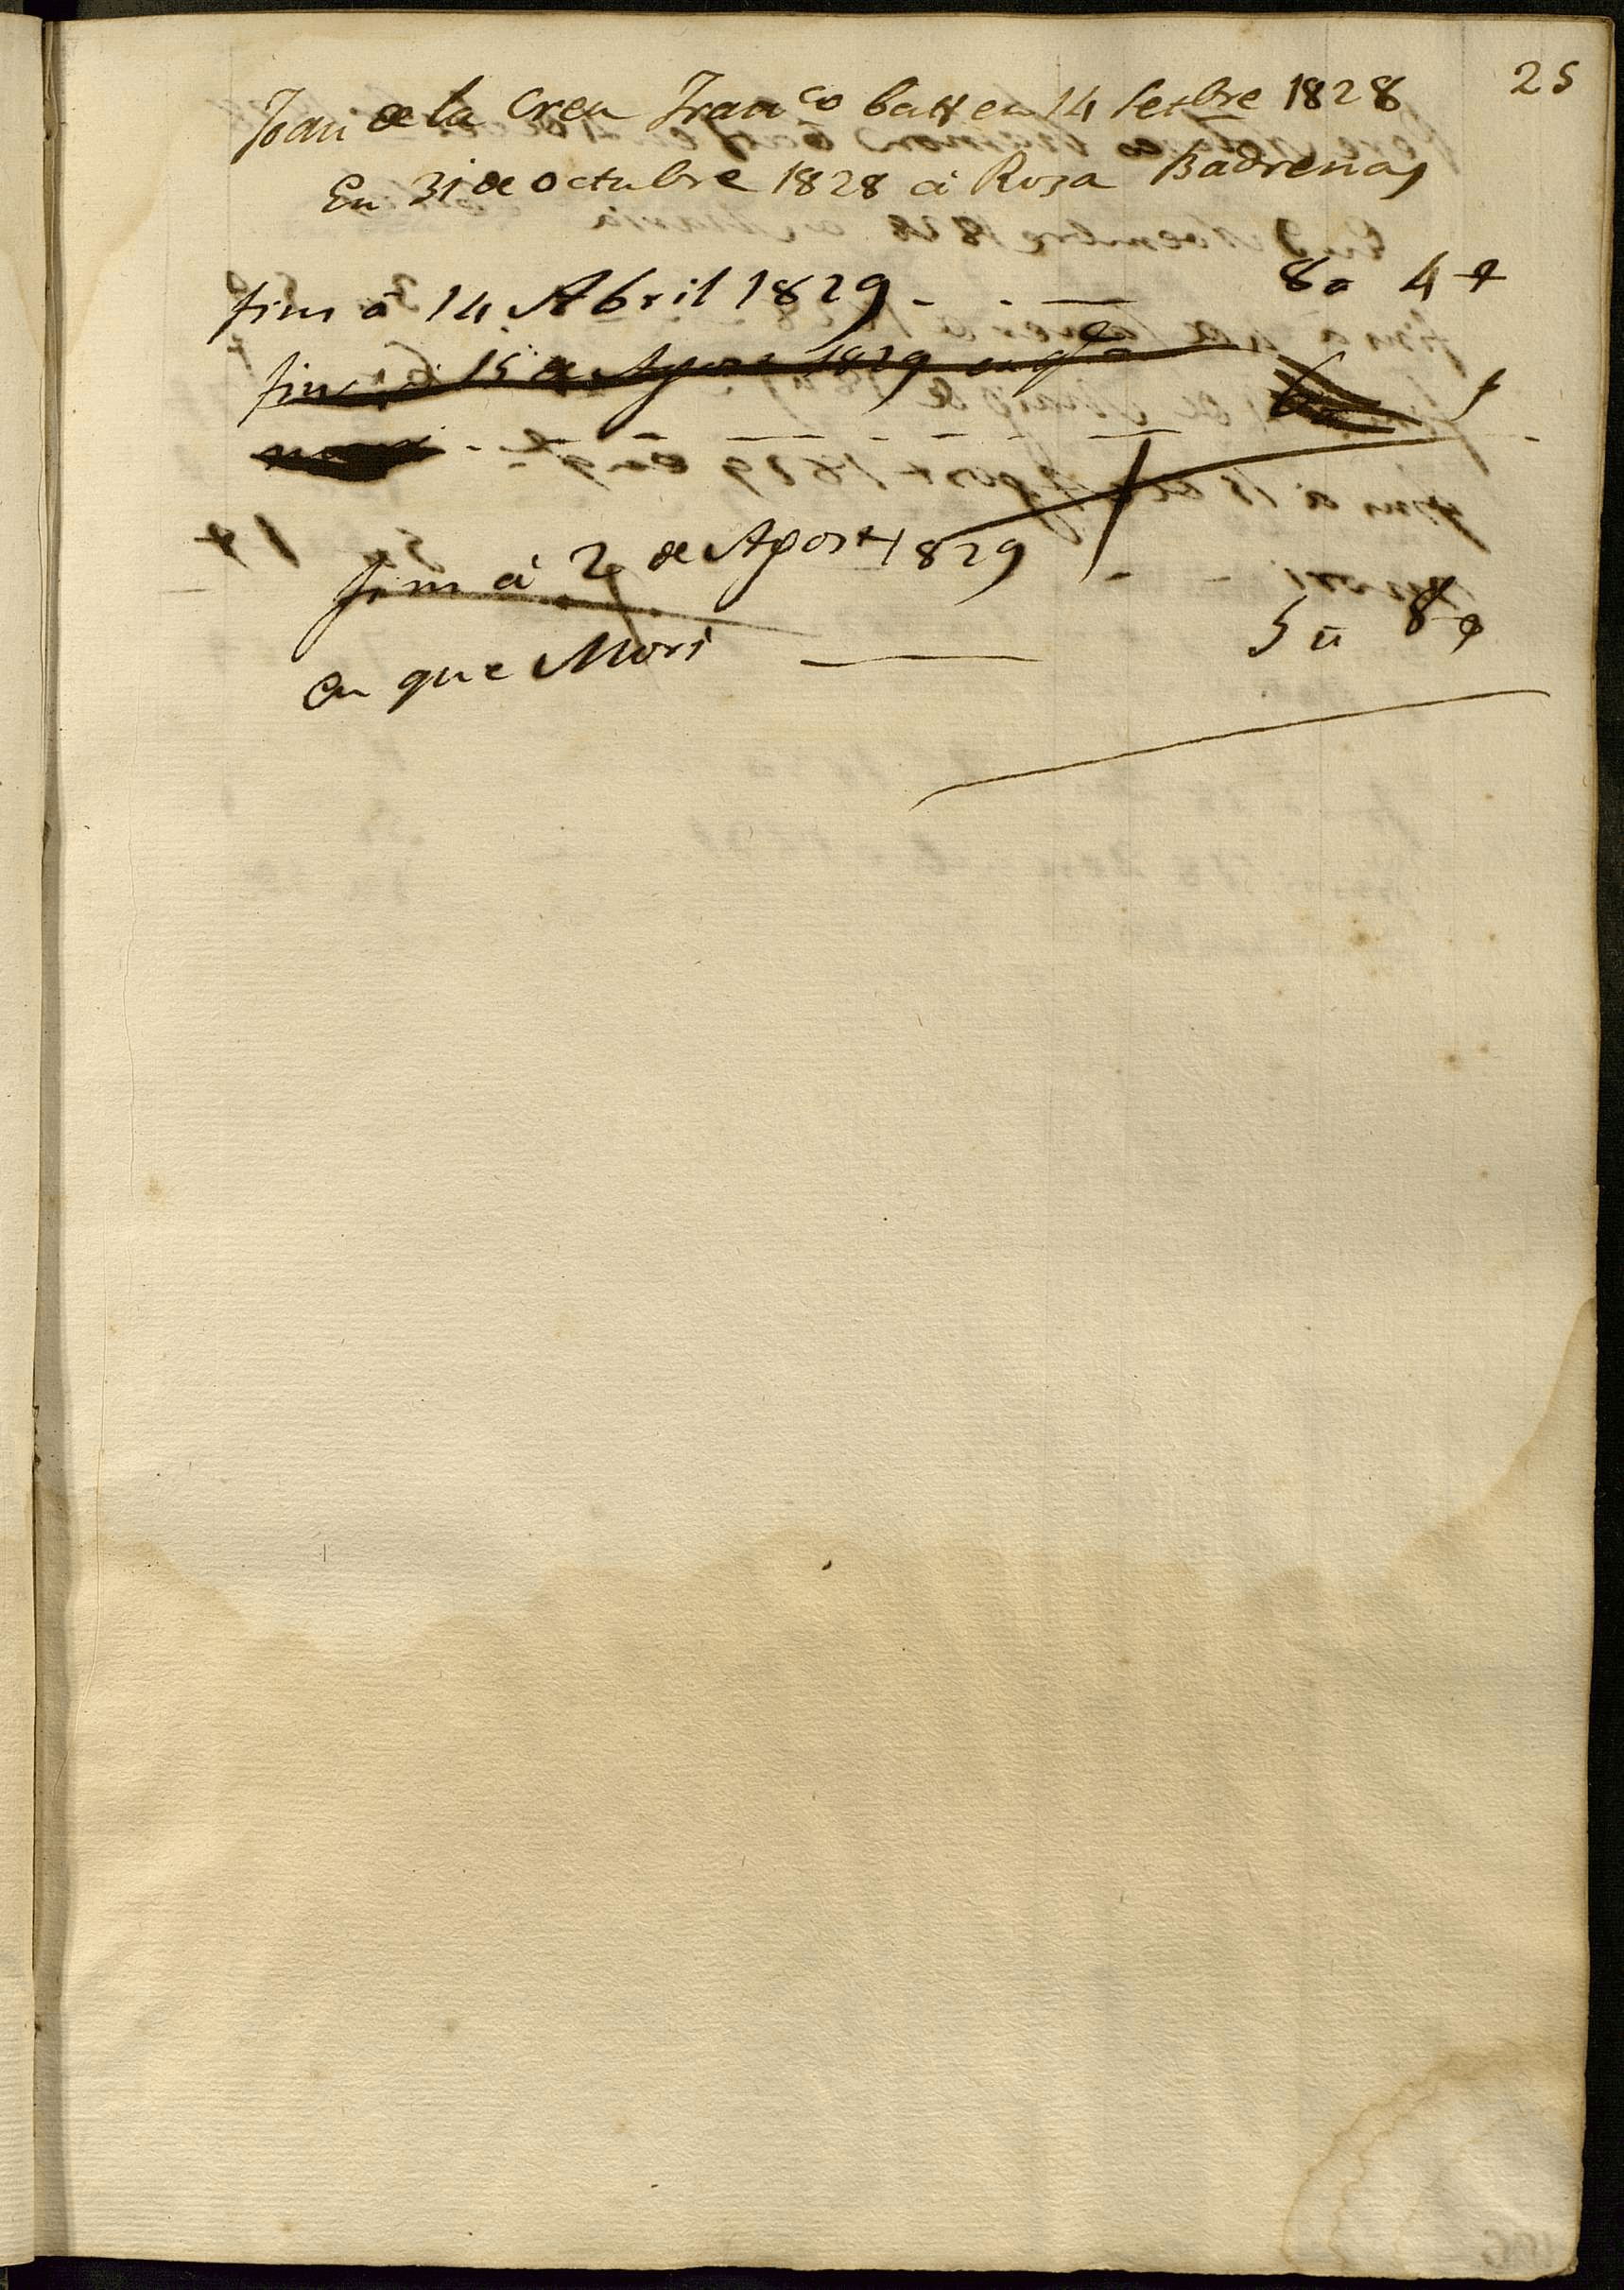 25
Joan de la Creu Fran.co batt en 14 Setbre 1828
En 31 de octubre 1828 á Rosa Badrenas
fins á 14 Abril 1829 - - — 8a 4
fins á 15 de Agost 1829 en q.e
mori
fins á 2 de Agost 1829 -
en que Mori — 5 ii 8